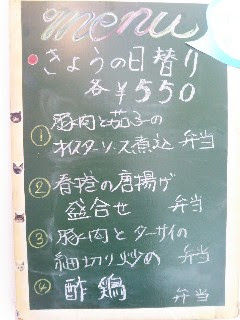 menu
きょうの日替り
各￥550
① 豚肉と茄子の
オイスターソース煮込 弁当
② 春巻の唐揚が
盛合せ 弁当
③ 豚肉とターサイの
細切り炒め 弁当
④ 酢鶏 弁当